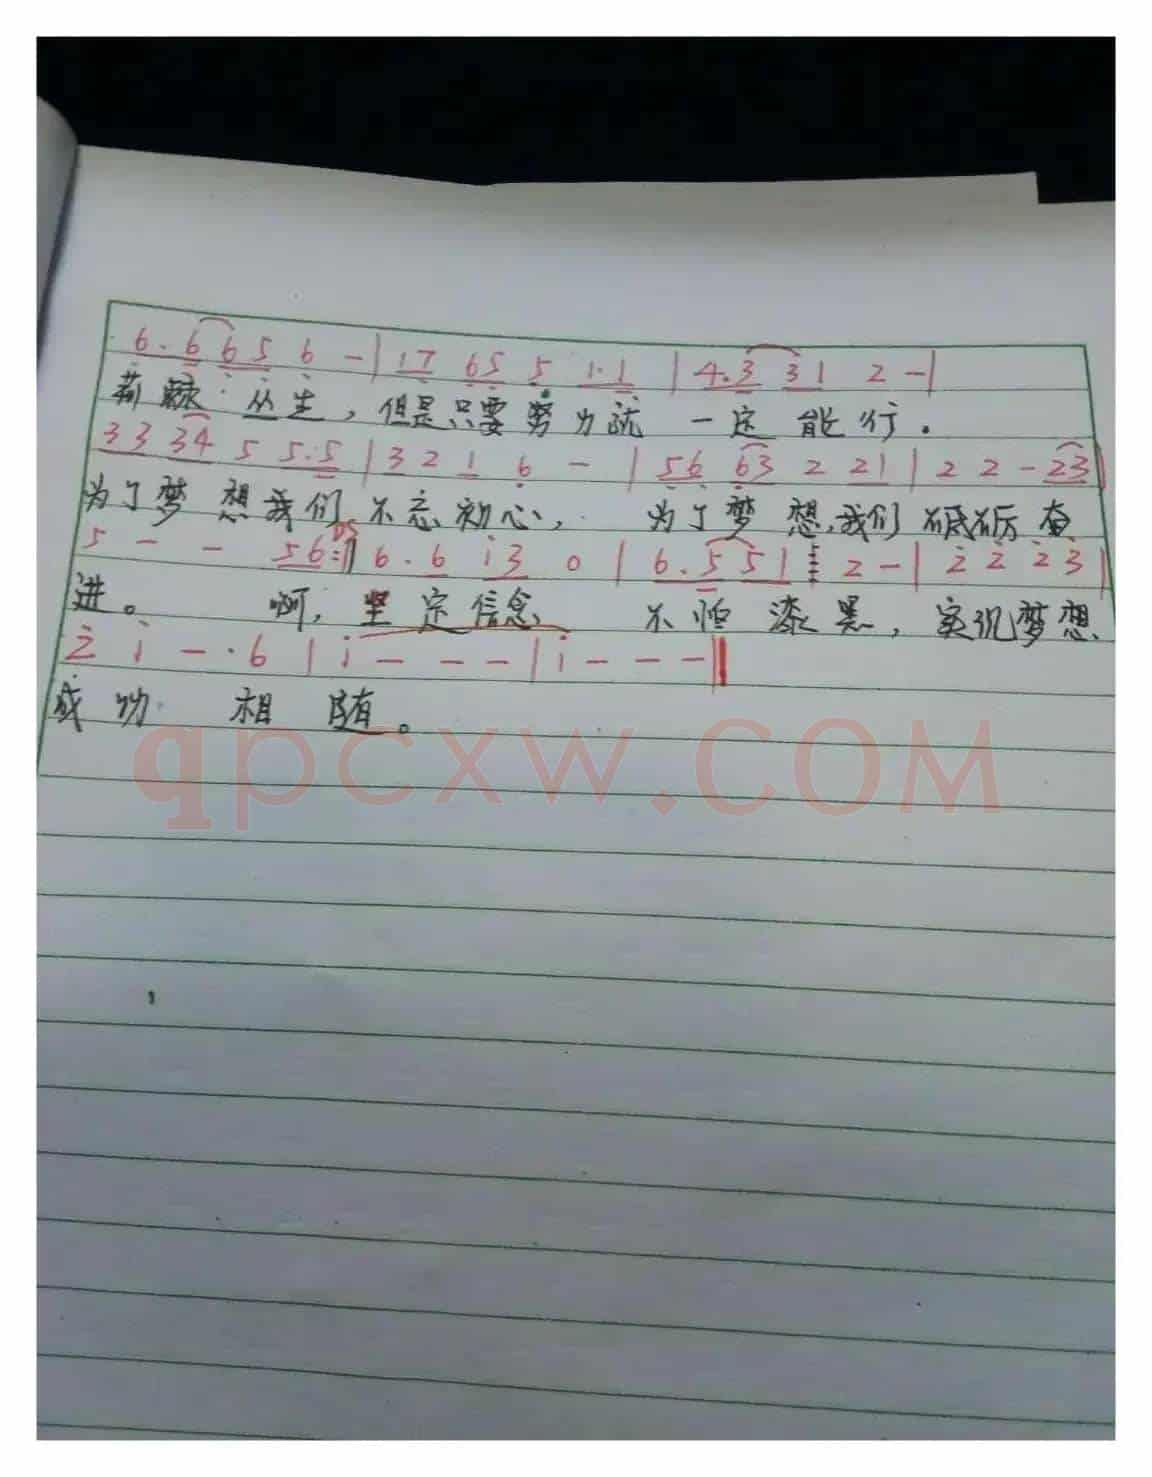 6. 6 6 5 6 - | 1 7 6 5 5 1. 1 | 4. 3 3 1 2 - |
荊棘丛生，但是只要努力就 一定 能行.
3 3 3 4 5 5. 5 | 3 2 1 6 - | 5 6 6 3 2 2 1 | 2 2 - 2 3 |
为了梦想我们不忘初心， 为了梦想，我们砥砺奋
5 - - 5 6 :‖ DS 6. 6 i 3 0 | 6. 5 5 1 2 - | 2 2 2 3 |
进。 啊，坚定信念 不怕漆黑，实现梦想
2 i - · 6 | i - - - | i - - - ‖
成功 相随。
qpcxw.COM